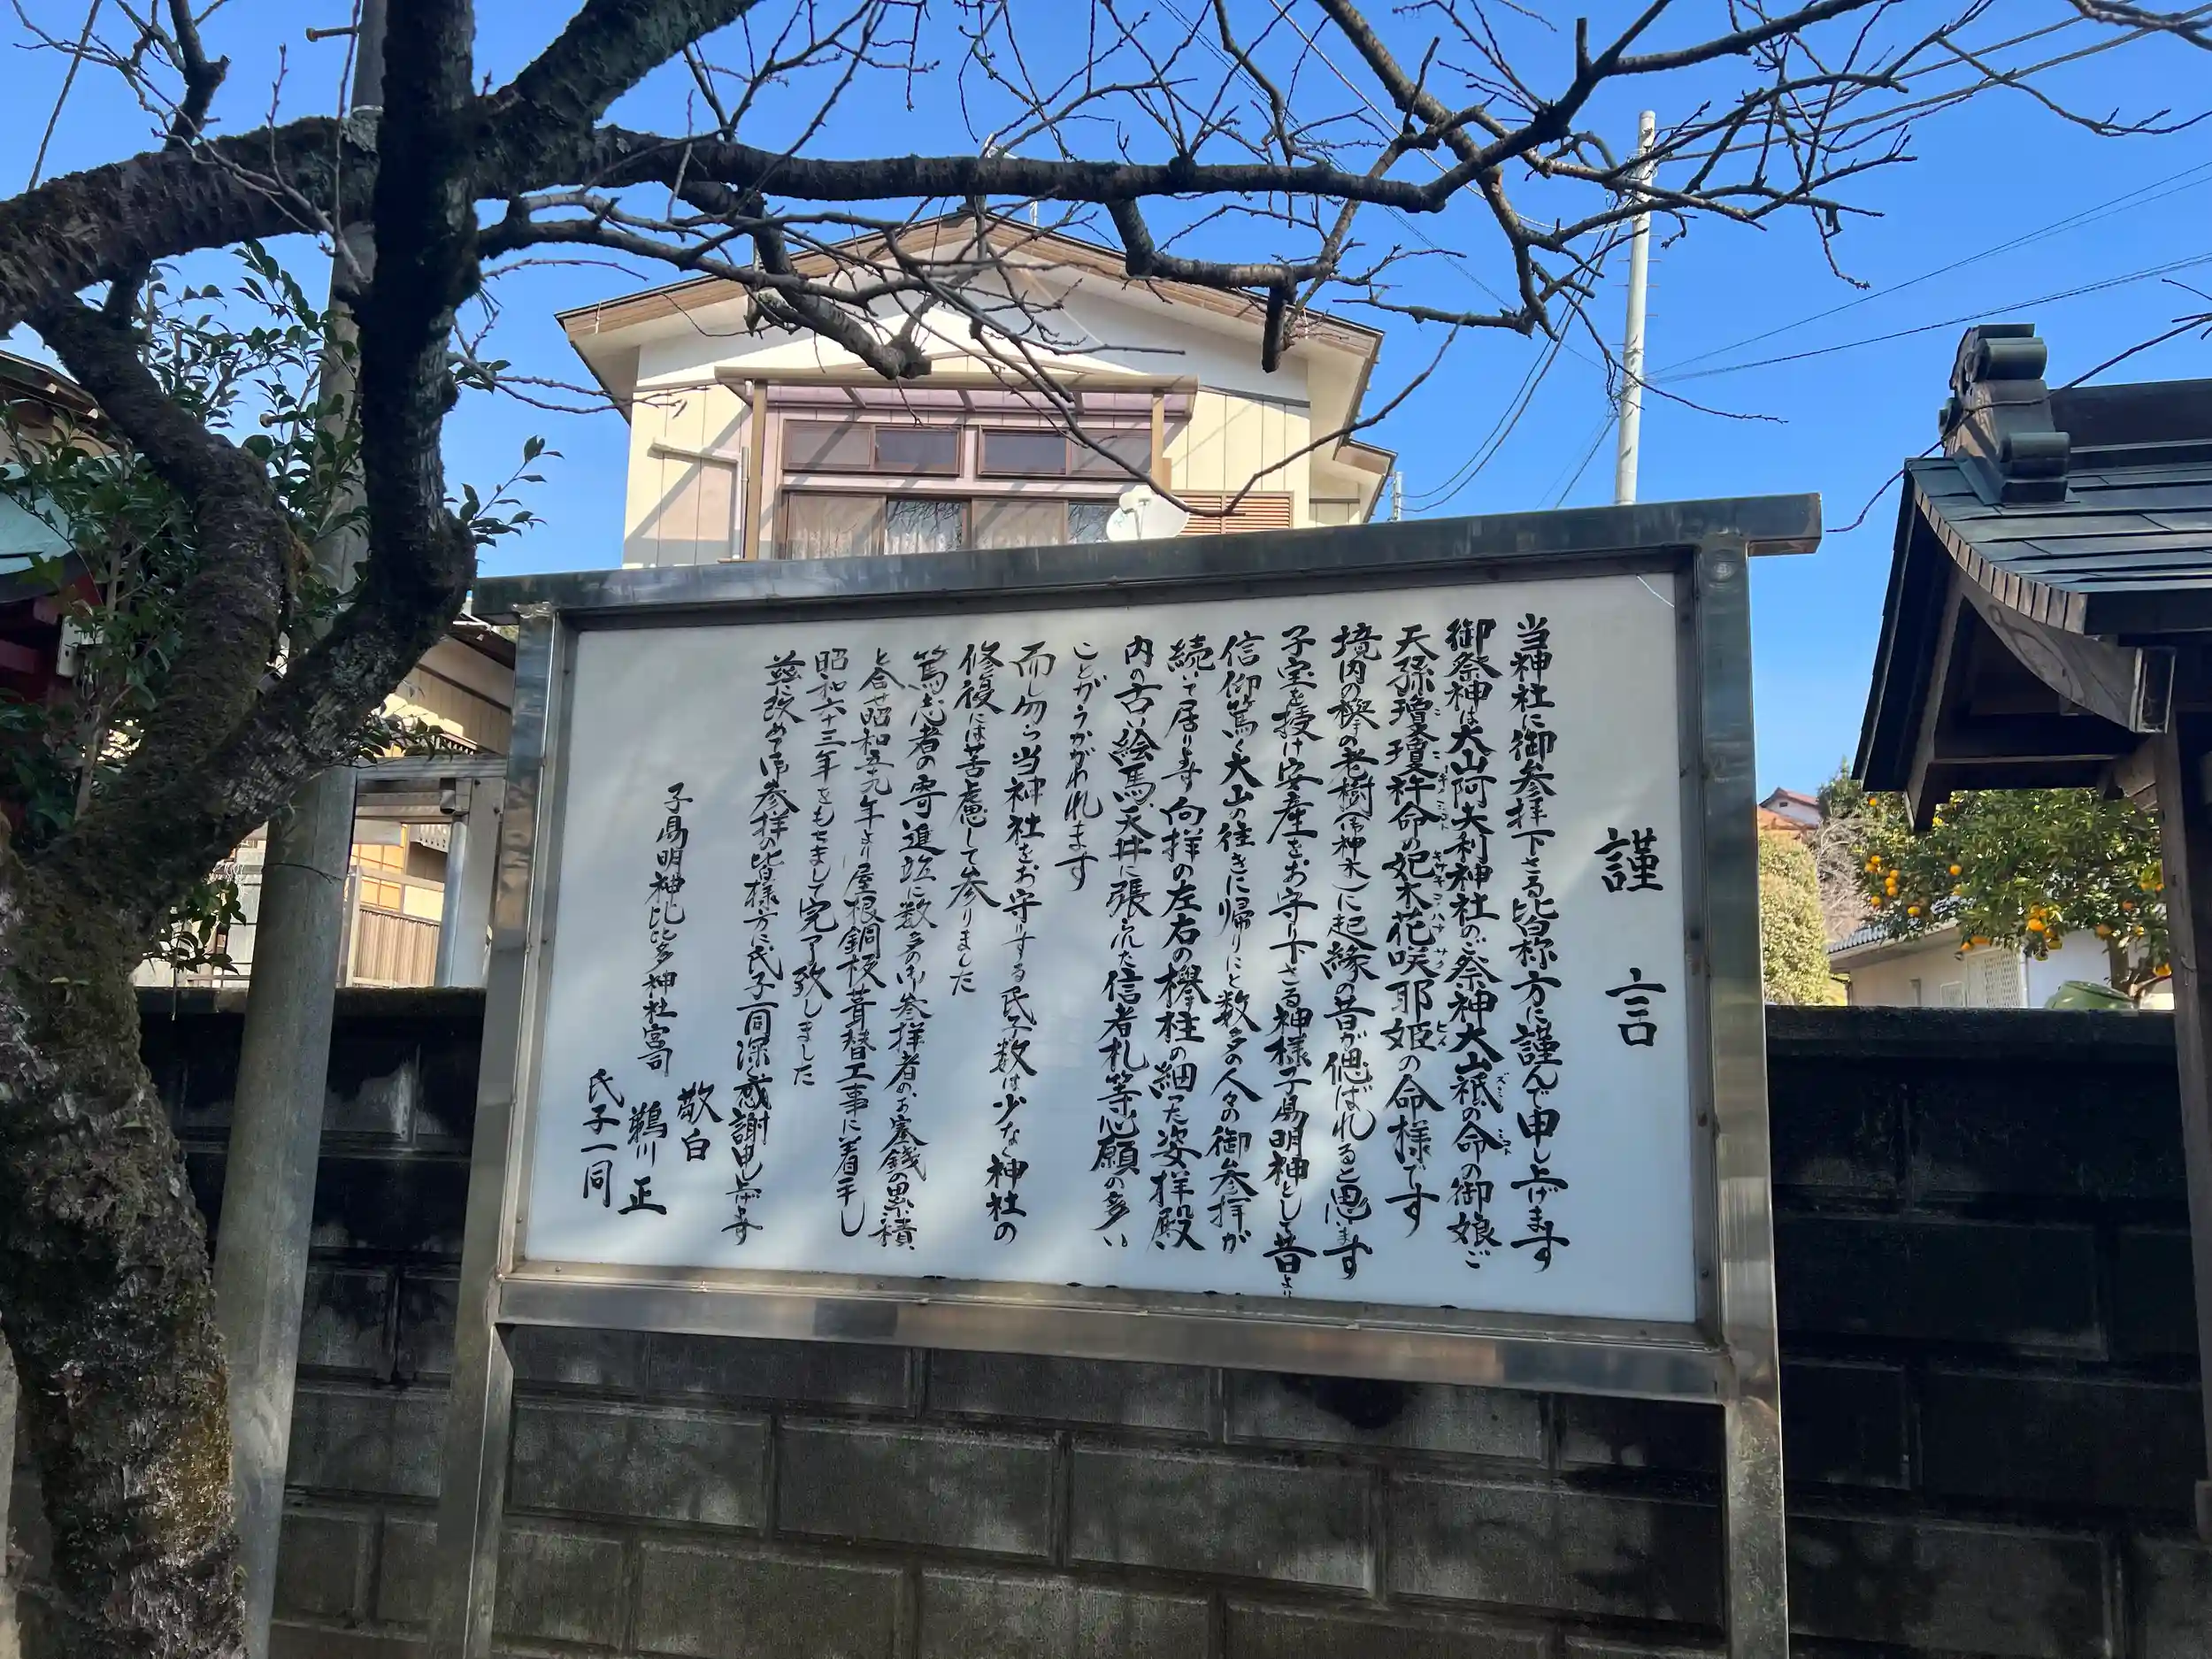 謹言
当神社に御参拝下さる皆様方に謹んで申し上げます
御祭神は大山阿夫利神社のご祭神大山祗の命の御娘ご
天孫瓊瓊杵命の妃木花咲耶姫の命様です
境内の欅の老樹(御神木)に起縁の昔が偲ばれると思います
子宝を授け安産をお守り下さる神様子易明神として昔より
信仰篤く大山の往きに帰りにと数多の人々の御参拝が
続いて居ります向拝の左右の欅柱の細った姿拝殿
内の古絵馬、天井に張られた信者札等心願の多い
ことがうかがわれます
而し乍ら当神社をお守りする氏子数は少なく神社の
修復には苦慮して参りました
篤志者の寄進並に数多の御参拝者のお賽銭の累積
と合せ昭和五九年より屋根銅板葺替工事に着手し
昭和六十三年をもちまして完了致しました
茲に改めて御参拝の皆様方に氏子一同深く感謝申し上げます
敬白
子易明神比比多神社宮司
鵜川正
氏子一同